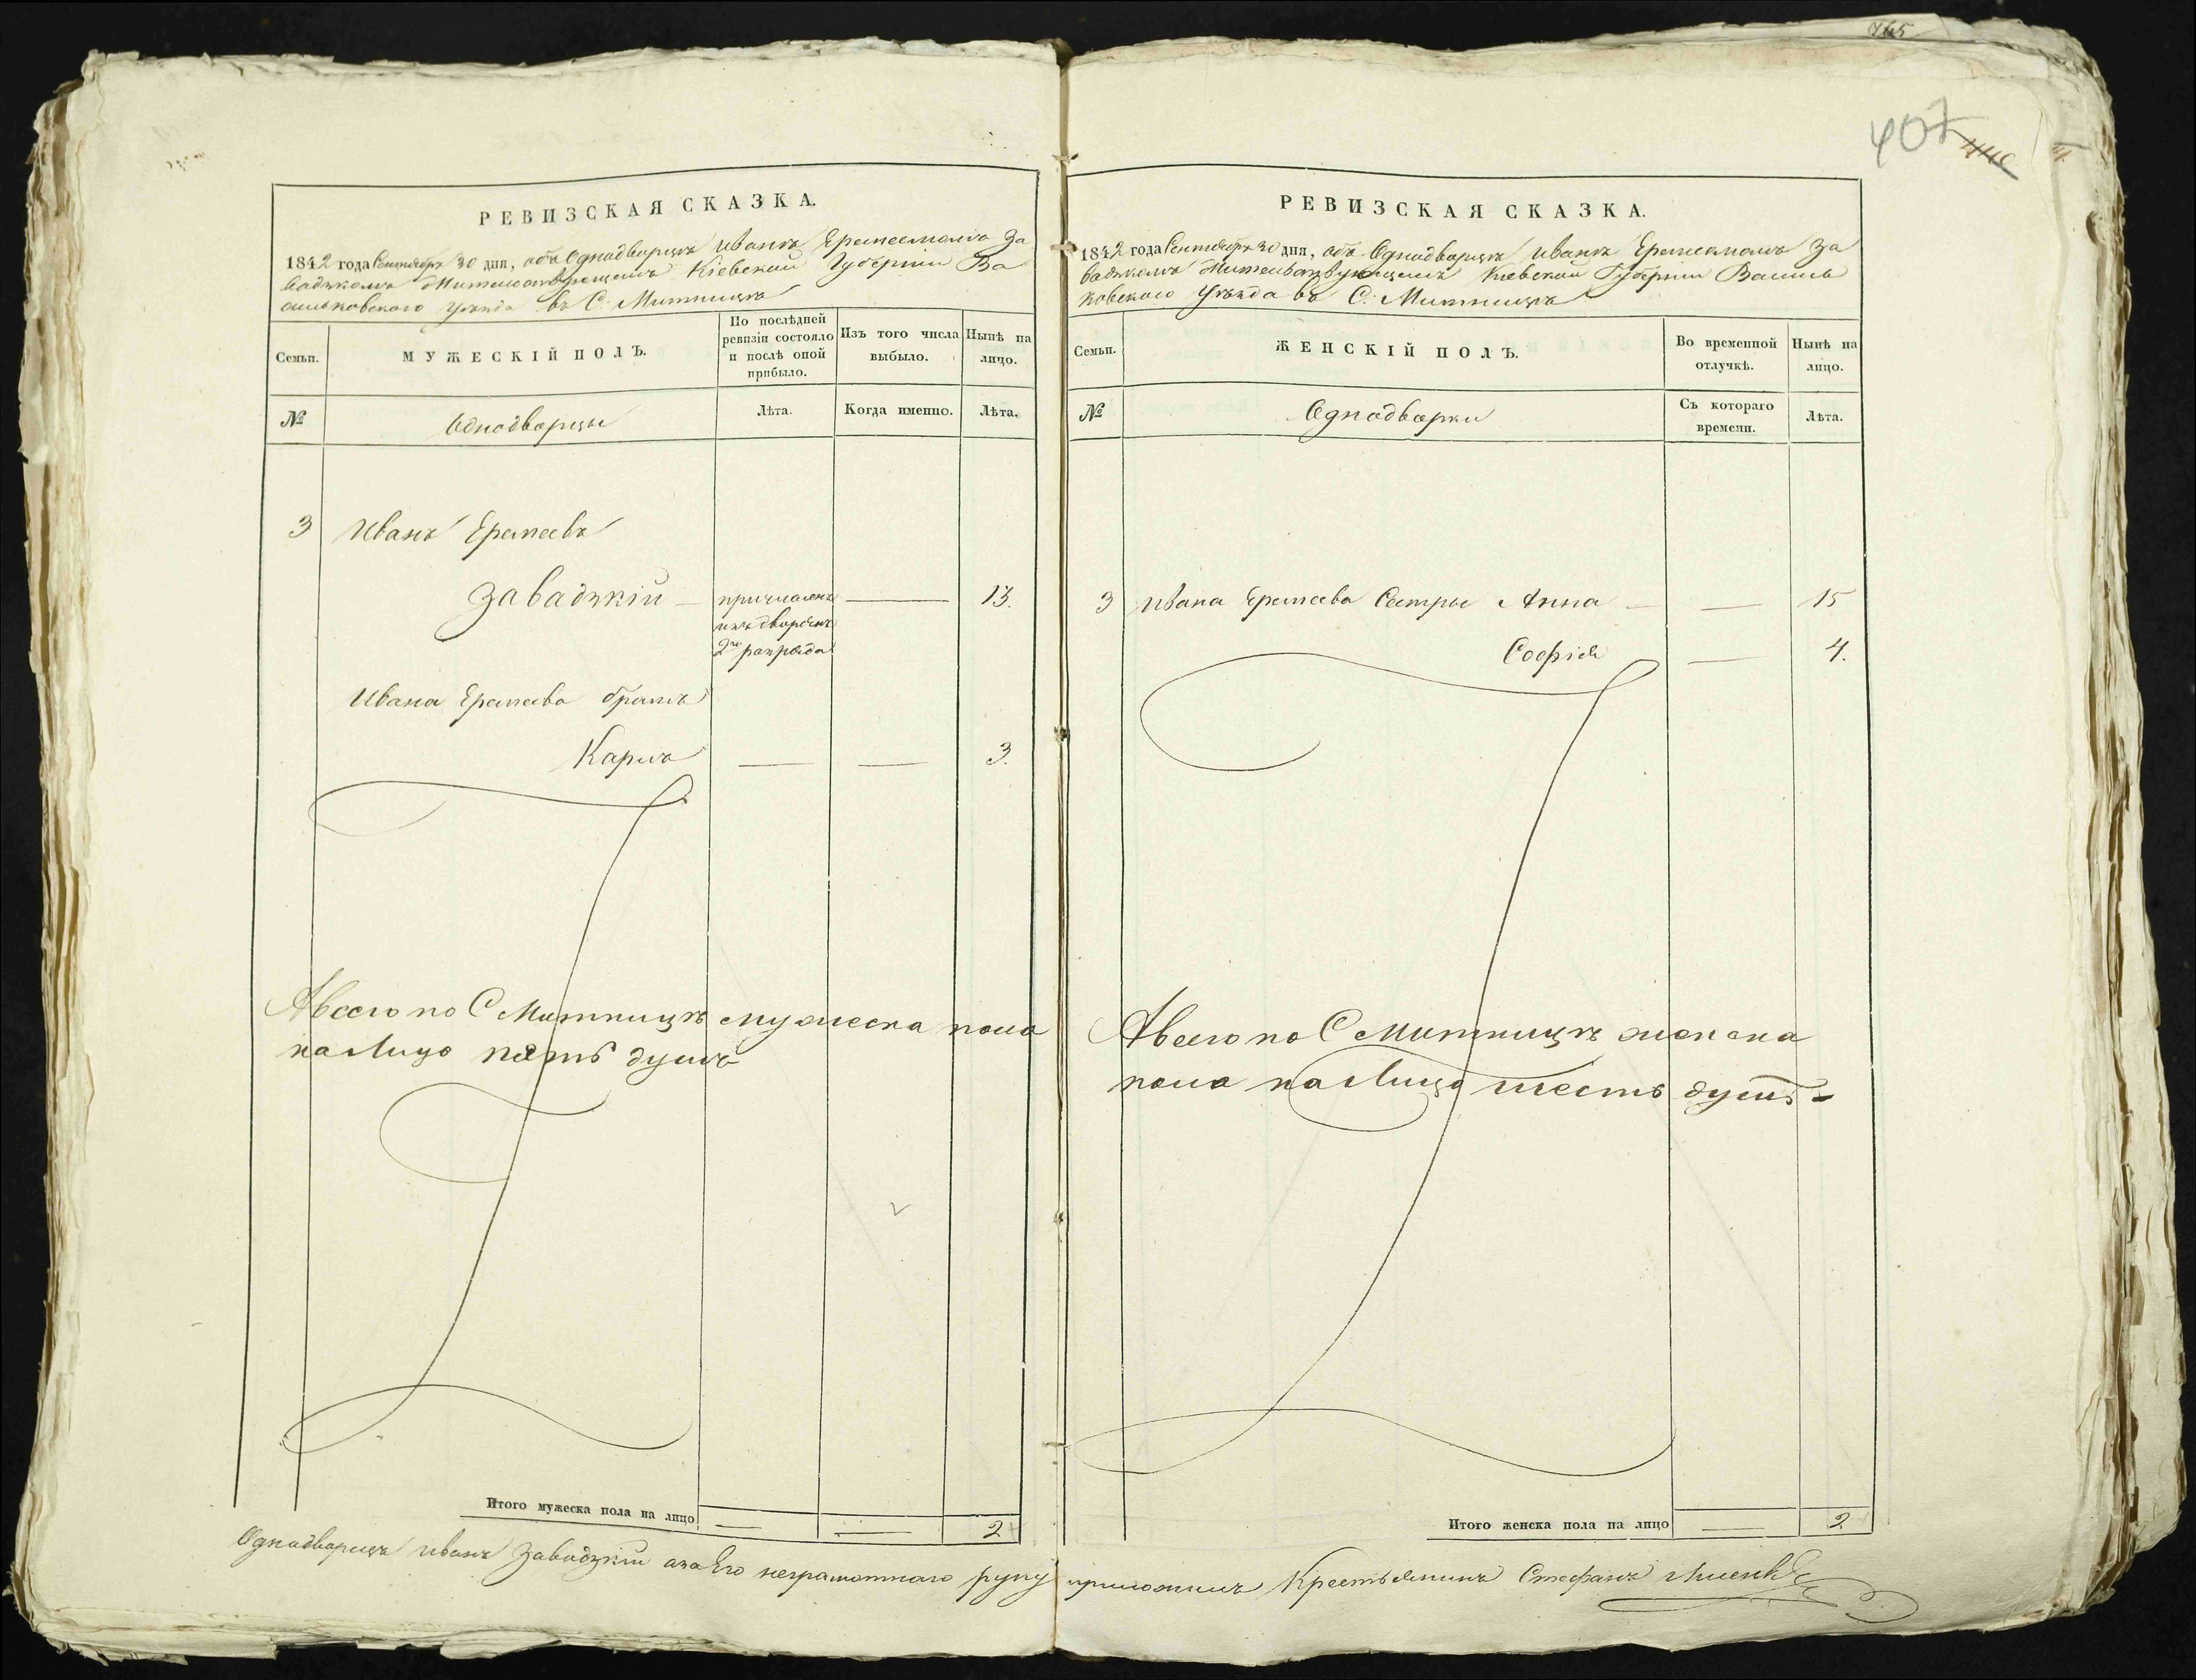 765
407
440
РЕВИЗСКАЯ СКАЗКА.
1842 года Сентября 30 дня, объ Однодворцѣ Иванѣ Еремеемомъ За
вадзкомъ Жительствующемъ Кіевской Губерніи Ва
сильковского уѣзда въ С. Митницѣ
Семьи.
МУЖЕСКІЙ ПОЛЪ.
По послѣдней ревизіи состояло и послѣ оной прибыло.
Изъ того числа выбыло.
Нынѣ на лицо.
№
Однодворцы
Лѣта.
Когда именно.
Лѣта.
3 Иванъ Еремеевъ
Завадзкій — причисленъ — 13.
изъ дворянъ
2го разряда
Ивана Еремеева братъ
Карлъ — — 3.
А всего по С Митницѣ мужеска пола
на Лицо пять душъ
Итого мужеска пола на лицо — — 2
РЕВИЗСКАЯ СКАЗКА.
1842 года Сентября 30 дня, объ Однодворцѣ Иванѣ Еремеемомъ За
вадзкомъ Жительствующемъ Кіевской Губерніи Василь
ковского уѣзда въ С. Митницѣ
Семьи.
ЖЕНСКІЙ ПОЛЪ.
Во временной отлучкѣ.
Нынѣ на лицо.
№
Однодворки
Съ котораго времени.
Лѣта.
3 Ивана Еремеева Сестры Анна — — 15
Софія — 4.
А всего по С Митницѣ женска
пола на Лицо шесть душъ -
Итого женска пола на лицо — 2
Однодворецъ Иванъ Завадзкій а за Его неграмотного руку приложилъ Крестьянинъ Стефанъ